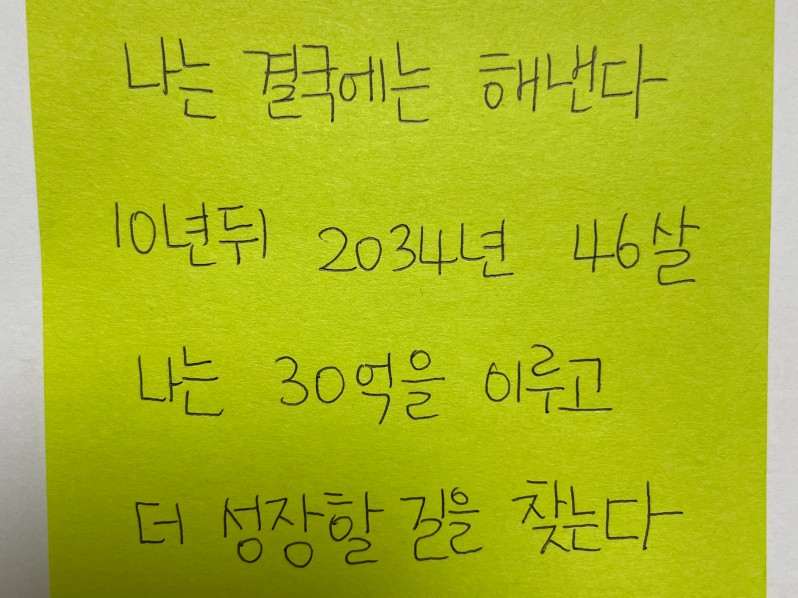 나는 결국에는 해낸다
10년뒤 2034년 46살
나는 30억을 이루고
더 성장할 길을 찾는다